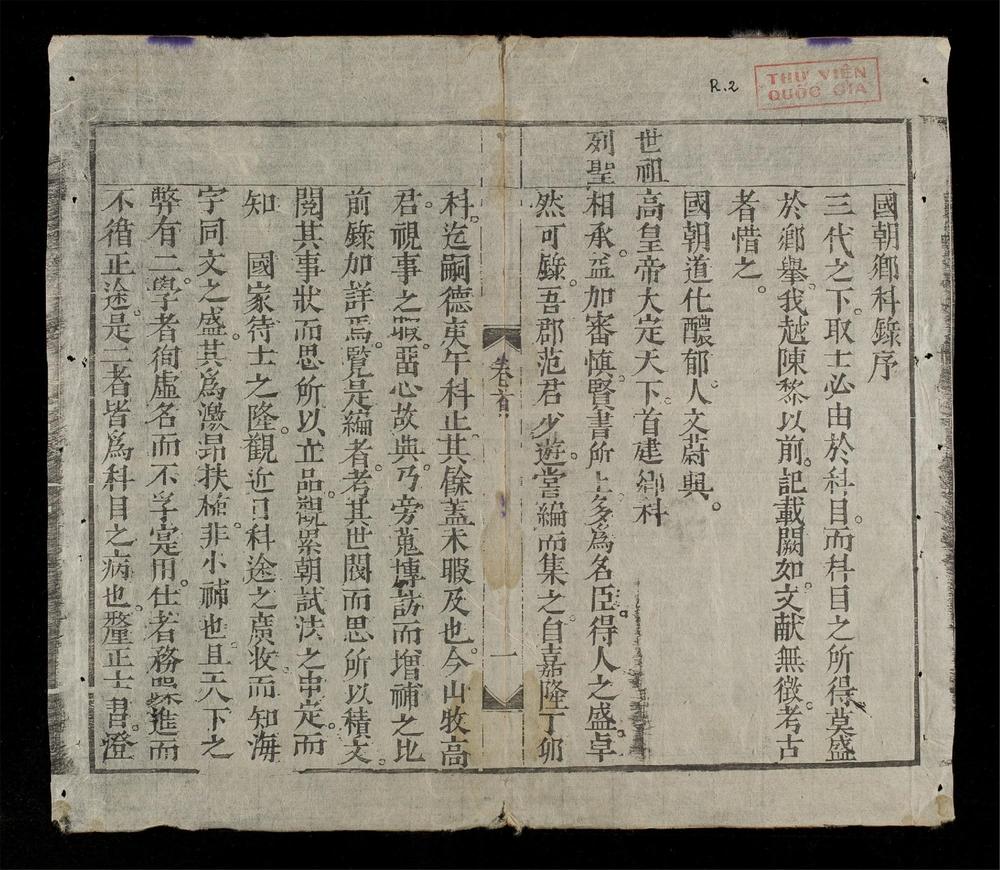 R.2
THƯ VIỆN
QUỐC GIA
國朝鄉科錄序
三代之下。取士必由於科目。而科目之所得莫盛
於鄉舉。我越陳黎以前。記載闕如。文献無徵。考古
者惜之。
國朝道化醲郁。人文蔚興。
世祖高皇帝大定天下。首建鄉科
列聖相承。益加審慎。賢書所上多為名臣。得人之盛。卓
然可錄。吾郡范君少遊。嘗編而集之。自嘉隆丁卯
科。迄嗣德庚午科止。其餘蓋未暇及也。今山牧高
君。視事之暇。留心故典。乃旁蒐博訪而增補之比
前錄加詳焉。覽是編者。考其世閥而思所以積文。
閱其事狀而思所以立品。觀累朝試法之申定。而
知 國家待士之隆。觀近日科途之廣收。而知海
宇同文之盛。其為激昂扶植。非小補也。且天下之
弊有二。學者徇虛名而不孚寔用。仕者務躁進而
不循正途。是二者皆為科目之病也。釐正士習。澄
卷首
一